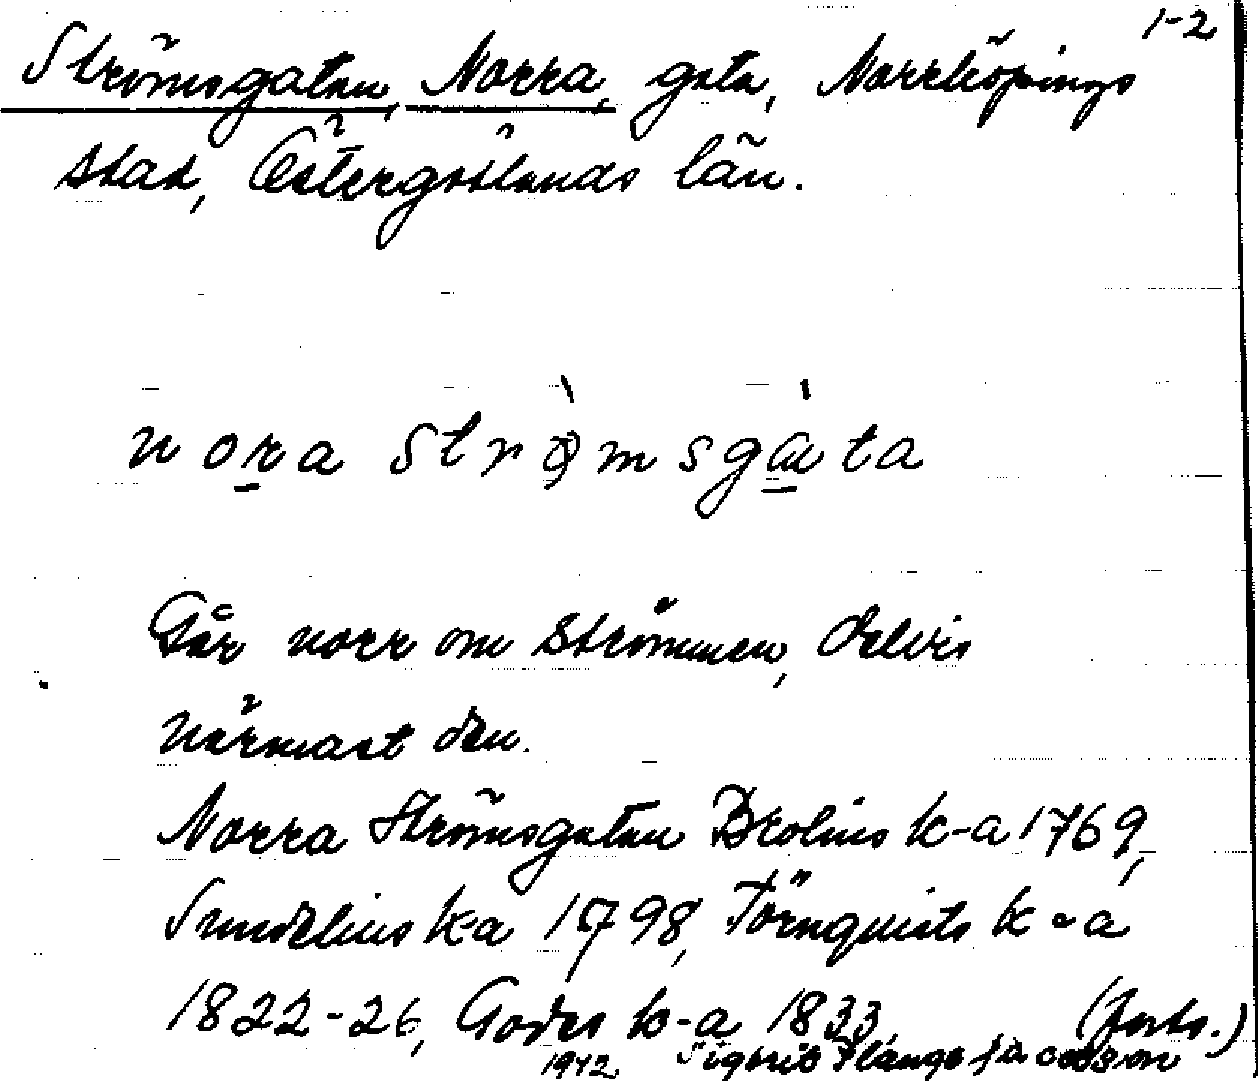 1-2
Strömsgatan, Norra, gata, Norrköpings
stad, Östergötlands län.
nora strømsgata
Går norr om Strömmen, delvis
närmast den.
Norra Strömsgatan Brolins k-a 1769,
Sundelius ka 1798, Törnquists k-a
1822-26, Godes k-a 1833, (forts.)
1942 Sigurit Plange Jacobsson